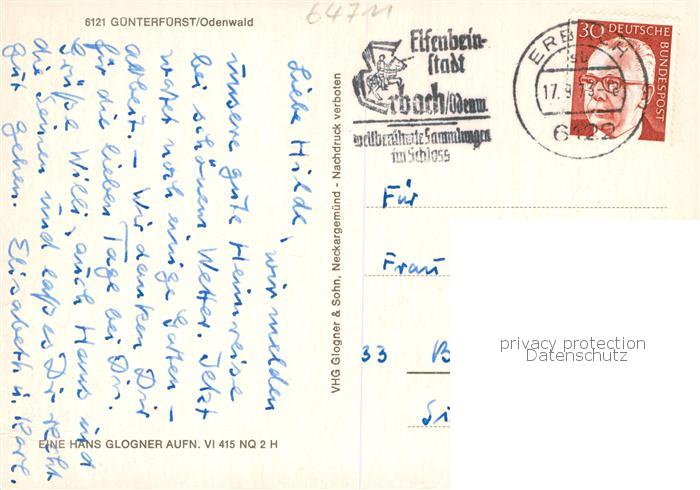 6121 GÜNTERFÜRST/Odenwald
64711
Liebe Hilde, wir melden
unsere gute Heimreise
bei schönem Wetter. Jetzt
wartet noch einige Garten-
arbeit. – Wir danken Dir
für die lieben Tage bei Dir.
Grüße Willi, auch Hans und
die Seinen und laß es Dir recht
gut gehen. Elisabeth u. Karl.
EINE HANS GLOGNER AUFN. VI 415 NQ 2 H
VHG Glogner & Sohn, Neckargemünd - Nachdruck verboten
Elfenbein-
stadt
Erbach/Odenw.
weltberühmte Sammlungen
im Schloss
ERBACH
17.9.73
6122
30
DEUTSCHE
BUNDESPOST
Für
Frau
33 B
Si
privacy protection
Datenschutz